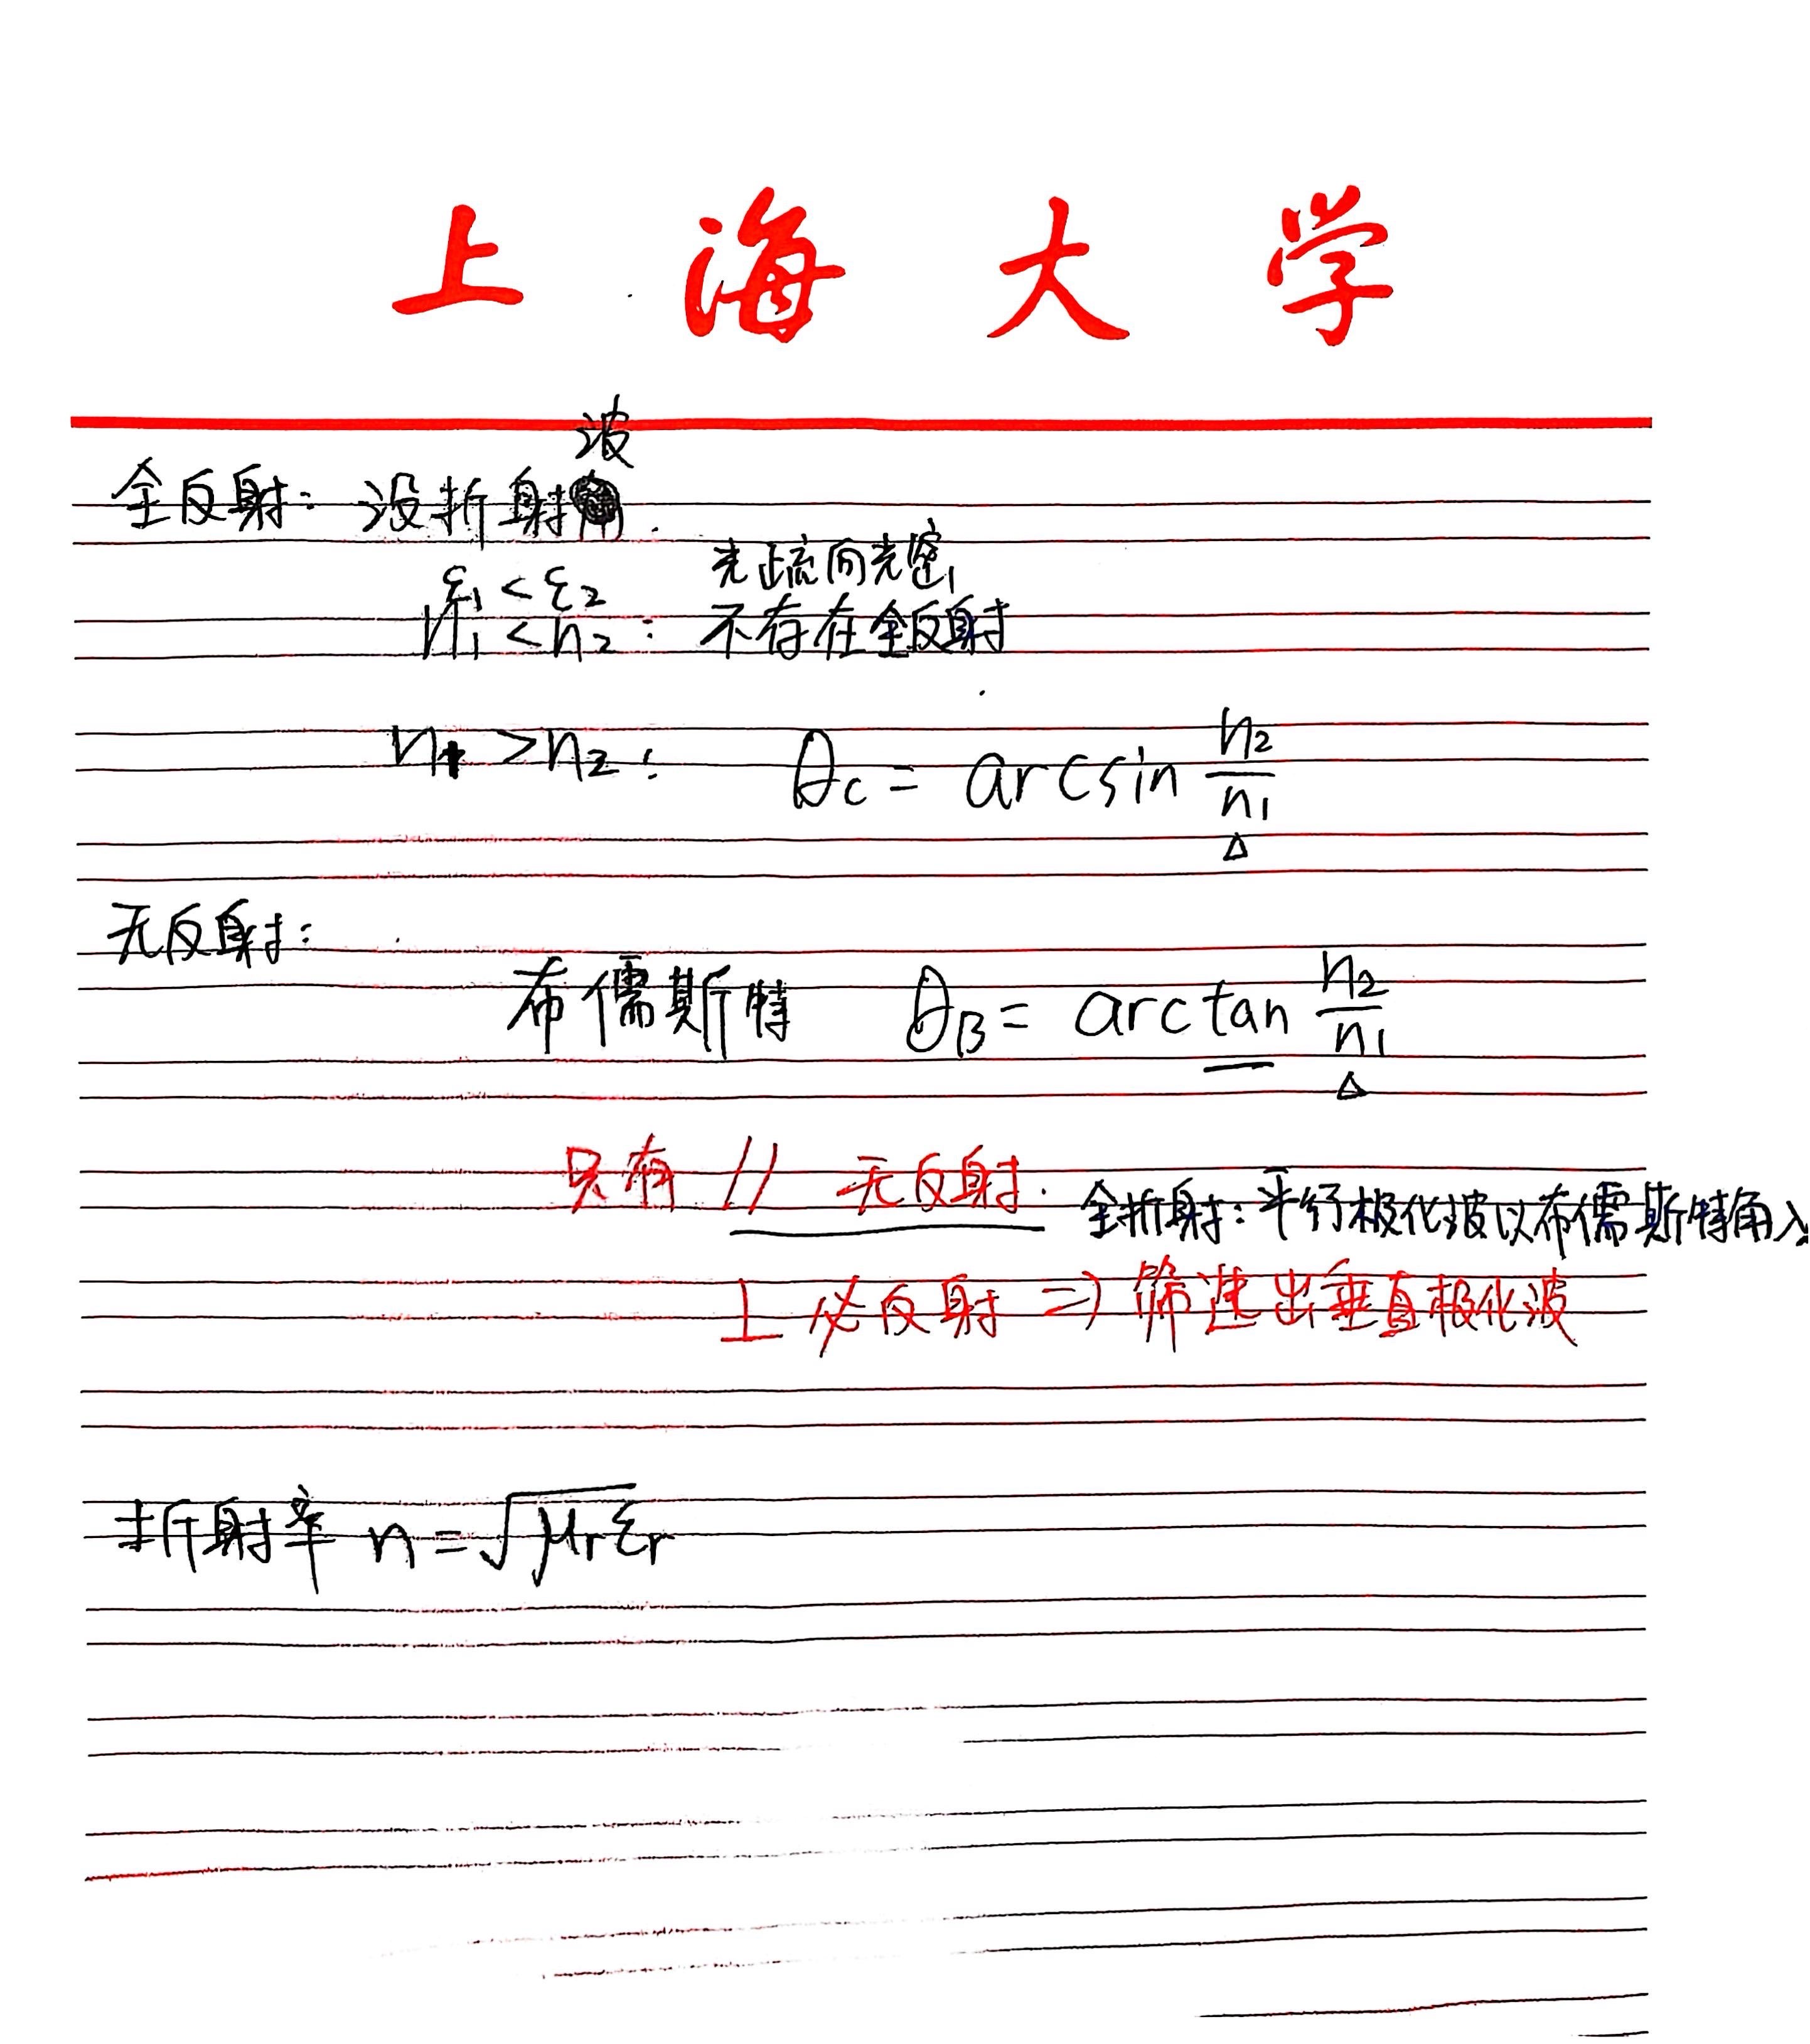 上海大学
波
全反射：没折射
ε₁ < ε₂ 光疏向光密,
n₁ < n₂ : 不存在全反射
n₁ > n₂ : θc = arcsin n₂/n₁
△
无反射：
布儒斯特 θB = arctan n₂/n₁
△
只有 // 无反射. 全折射：平行极化波以布儒斯特角入
⊥ 必反射 ⇒ 筛选出垂直极化波
折射率 n = √μrεr